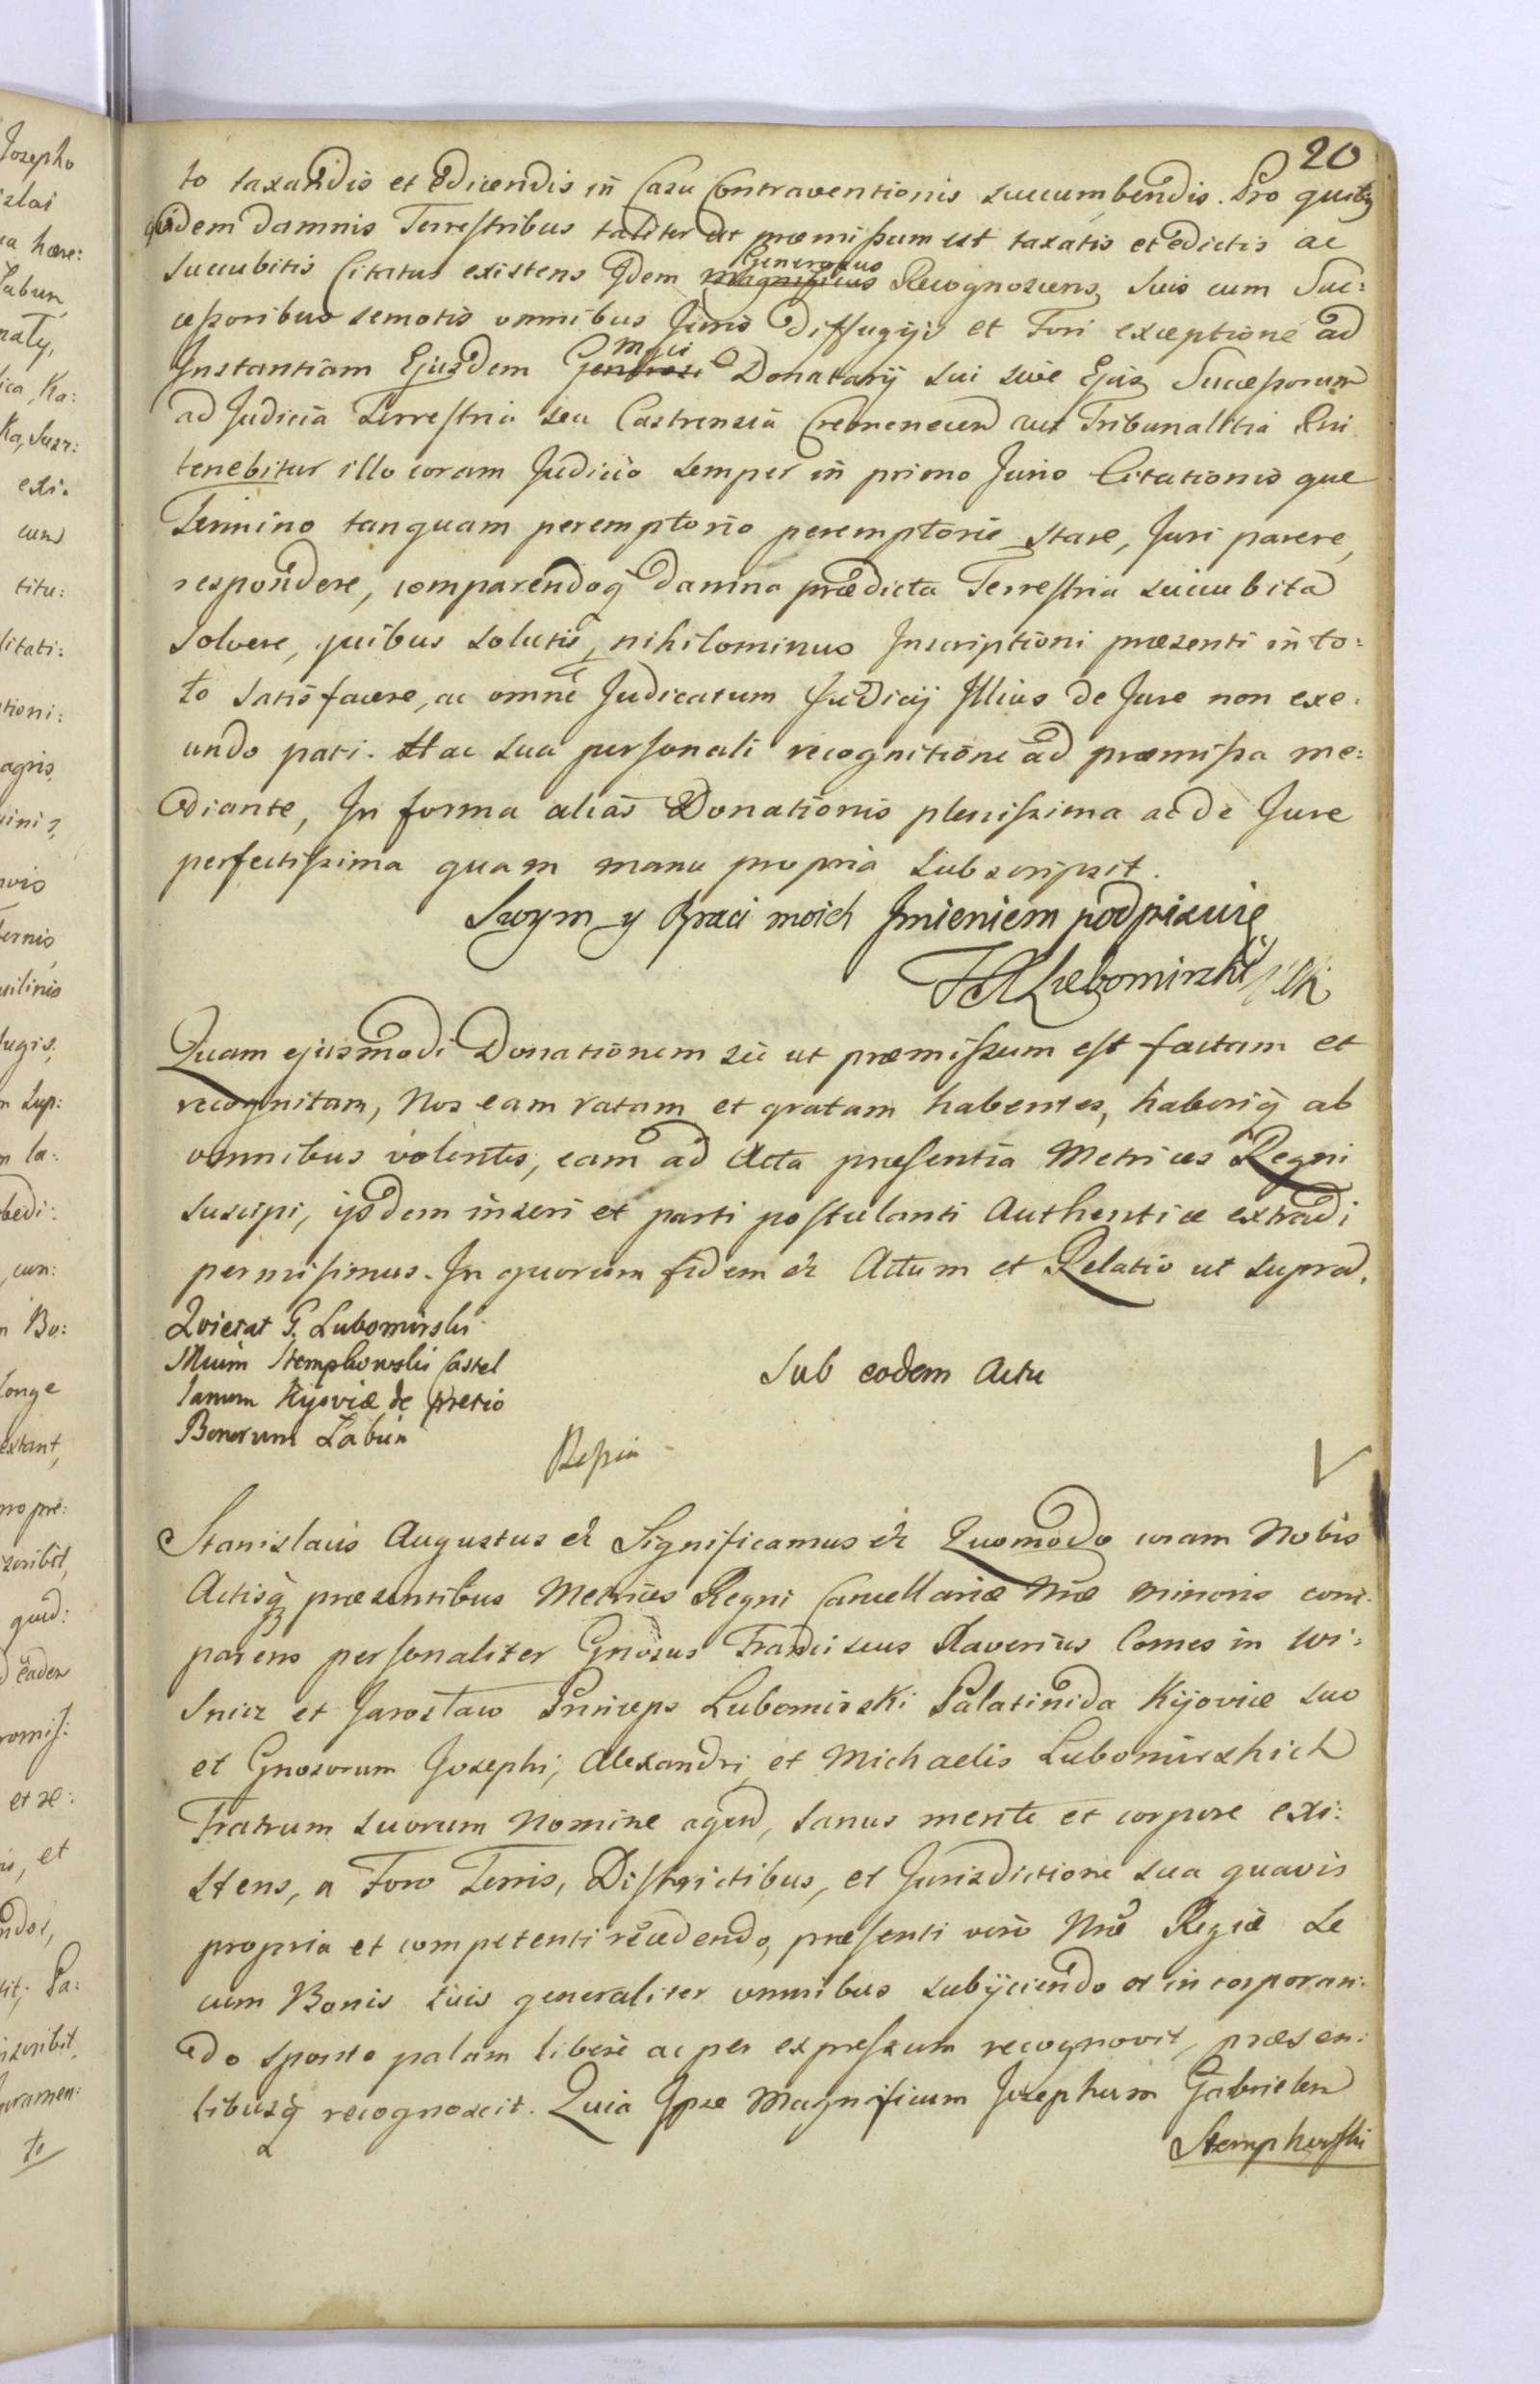 20
to taxandis et edicendis in Casu Contraventionis succumbendis. Pro quibq
quidem damnis Terrestribus taliter ut præmissum est taxatis et edictis ac
succubitis Citatus existens Idem Magnificus Generosus Recognoscens, Suis cum Suc:
cessoribus semotis omnibus Juris diffugijs et Fori exceptione ad
Instantiam Ejusdem Generosi Mgci Donatarij sui sive Ejus Successorum
ad Judicia Terrestria seu Castrensia Cremenecen aut Tribunalitia Rni
tenebitur illo coram Judicio semper in primo Jurio Citationis que
Termino tanquam peremptorio peremptorie stare, Juri parere,
respondere, comparendoq damna prædicta Terrestria succubita
solvere, quibus solutis, nihilominus Inscriptioni præsenti in to:
to satisfacere, ac omne Judicatum Judicij Illius de Jure non exe:
undo pati. Hac sua personali recognitione ad præmissa me:
diante, In forma alias Donationis plenissima ac de Jure
perfectissima quam manu propria subscripsit.
Swym y Braci moich Jmieniem podpisuię
FX Lubomirski
Quam ejusmodi Donationem sic ut præmissum est factam et
recognitam, Nos eam ratam et gratam habentes, haberiq ab
omnibus volentes, eam ad Acta præsentia Metrices Regni
suscipi, ijsdem inseri et parti postulanti Authentice extradi
permisimus. In quorum fidem & Actum et Relatio ut supra.
Quietat G. Lubomirski
Mcum Stempkowski Castel
lanum Kijoviæ de pretio
Bonorum Łabuń
Sub eodem Actu
V
Stanislaus Augustus & Significamus & Quomodo coram Nobis
Actisq præsentibus Metrices Regni Cancellariæ Nræ minoris com:
parens personaliter Gnosus Franciscus Xaverius Comes in Wi:
snicz et Jarosław Princeps Lubomirski Palatinida Kijoviæ suo
et Gnosorum Josephi, Alexandri, et Michaelis Lubomirskich
Fratrum suorum Nomine agen, sanus mente et corpore exi:
stens, a Foro Terris, Districtibus, et Jurisdictione sua quavis
propria et competenti recedendo, præsenti vero Nræ Regiæ se
cum Bonis suis generaliter omnibus subijciendo et incorporan:
do sponte palam libere ac per expressum recognovit, præsen:
tibusq recognoscit. Quia Ipse Magnificum Josephum Gabrielem
Stempkowski